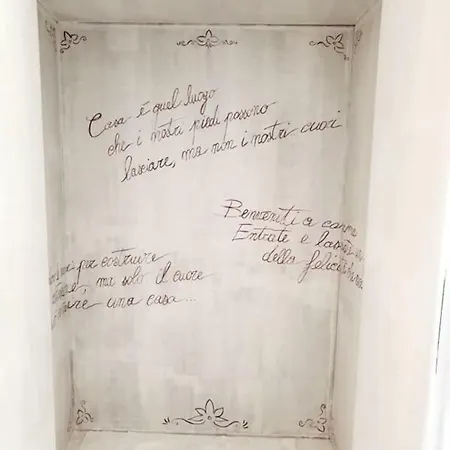 Casa é quel luogo
che i nostri piedi possono
lasciare, ma non i nostri cuori
Benvenuti a
Entrate e
della felicità
per costruire
ma solo il cuore
una casa...